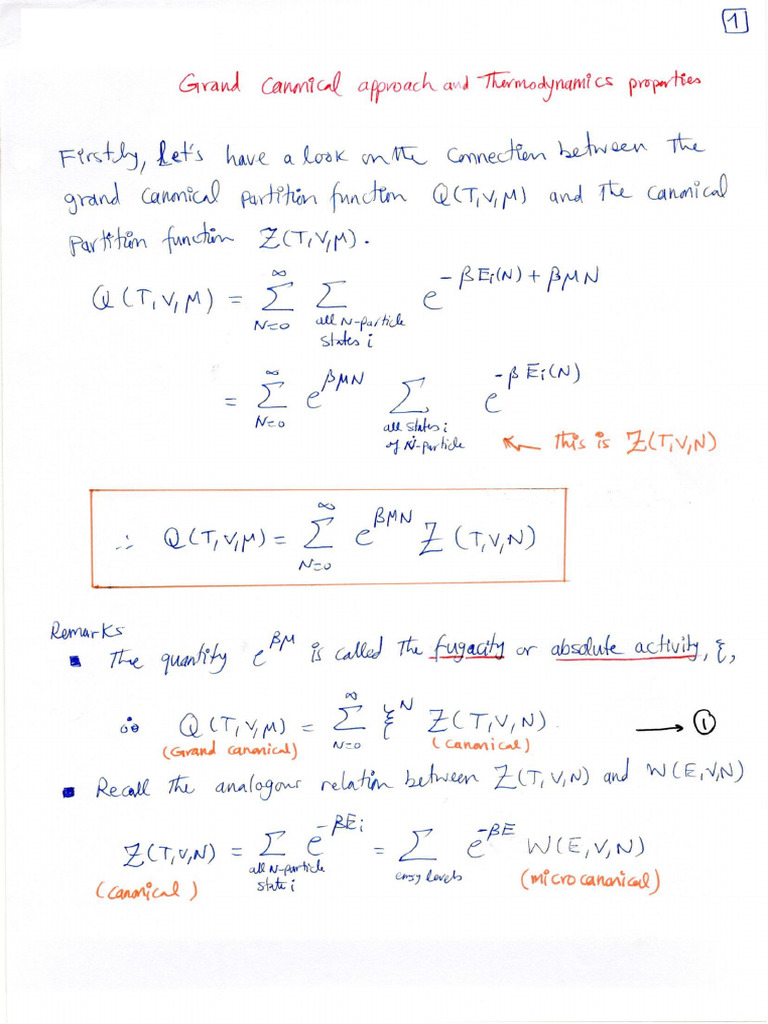 1
Grand Canonical approach and Thermodynamics properties
Firstly, Let's have a look on the connection between the
grand canonical partition function Q(T,V,M) and the canonical
Partition function Z(T,V,M).
Q(T,V,M) = ∑_{N=0}^{∞} ∑_{all N-particle states i} e^{-βEi(N) + βMN}
= ∑_{N=0}^{∞} e^{βMN} ∑_{all states i of N-particle} e^{-βEi(N)}
← this is Z(T,V,N)
∴ Q(T,V,M) = ∑_{N=0}^{∞} e^{βMN} Z(T,V,N)
Remarks
▪ The quantity e^{βM} is called the fugacity or absolute activity, ξ,
∴ Q(T,V,M) = ∑_{N=0}^{∞} ξ^N Z(T,V,N). → ①
(Grand canonical) (canonical)
▪ Recall the analogour relation between Z(T,V,N) and W(E,V,N)
Z(T,V,N) = ∑_{all N-particle state i} e^{-βEi} = ∑_{enrgy levels} e^{-βE} W(E,V,N)
(canonical) (microcanonical)